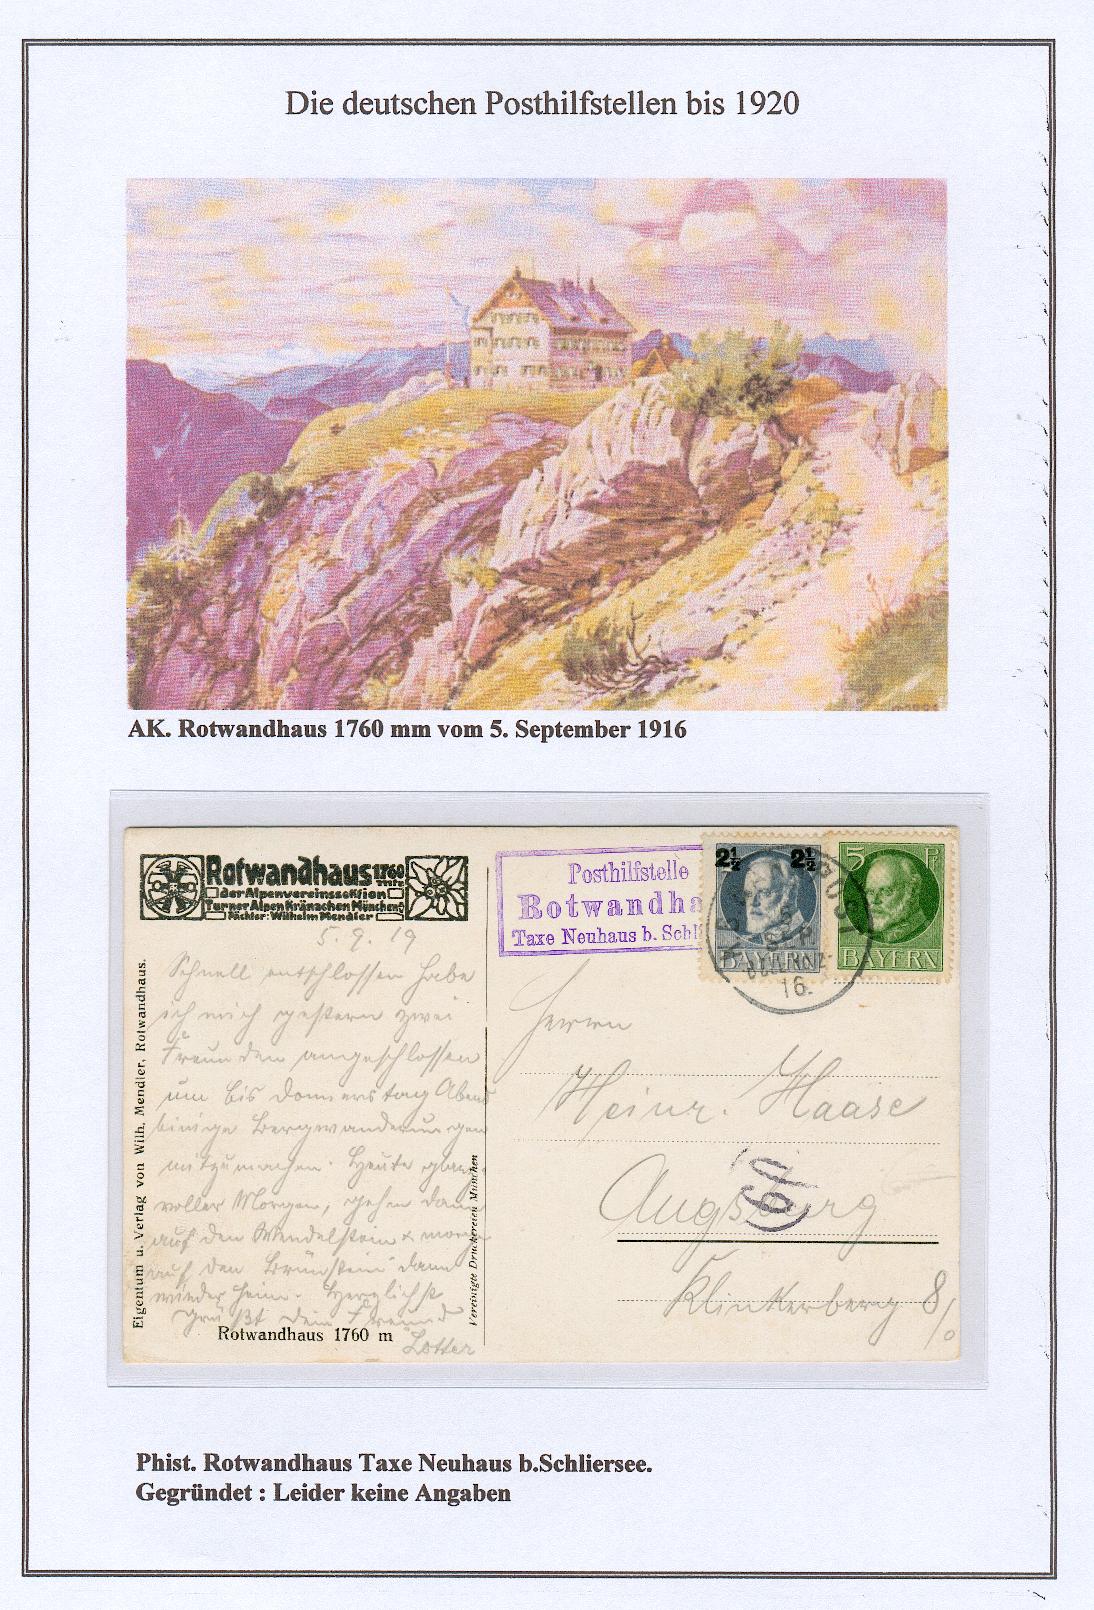 Die deutschen Posthilfstellen bis 1920
AK. Rotwandhaus 1760 mm vom 5. September 1916
Rotwandhaus 1760
mtr.
der Alpenvereinssektion
Turner Alpen Kränzchen München
Pächter: Wilhelm Mendler
Posthilfstelle
Rotwandha
Taxe Neuhaus b. Schli
2½ 2½
BAYERN
5 Pf
BAYERN
BAHNPOST
16.
5. 9. 19
Schnell entschlossen habe
ich mich gestern zwei
Freunden angeschlossen
um bis Donnerstag Abend
einige Bergwanderungen
mitzumachen. Heute glanz-
voller Morgen, gehn dann
auf den Wendelstein & morgen
auf den Brünstein dann
wieder heim. Herzlichst
grüßt dein Freund
Lotter
Rotwandhaus 1760 m
Eigentum u. Verlag von Wilh. Mendler, Rotwandhaus.
Vereinigte Druckereien München
Herrn
Heinr. Haase
Augsburg
Klinkerberg 8/0
Phist. Rotwandhaus Taxe Neuhaus b.Schliersee.
Gegründet : Leider keine Angaben